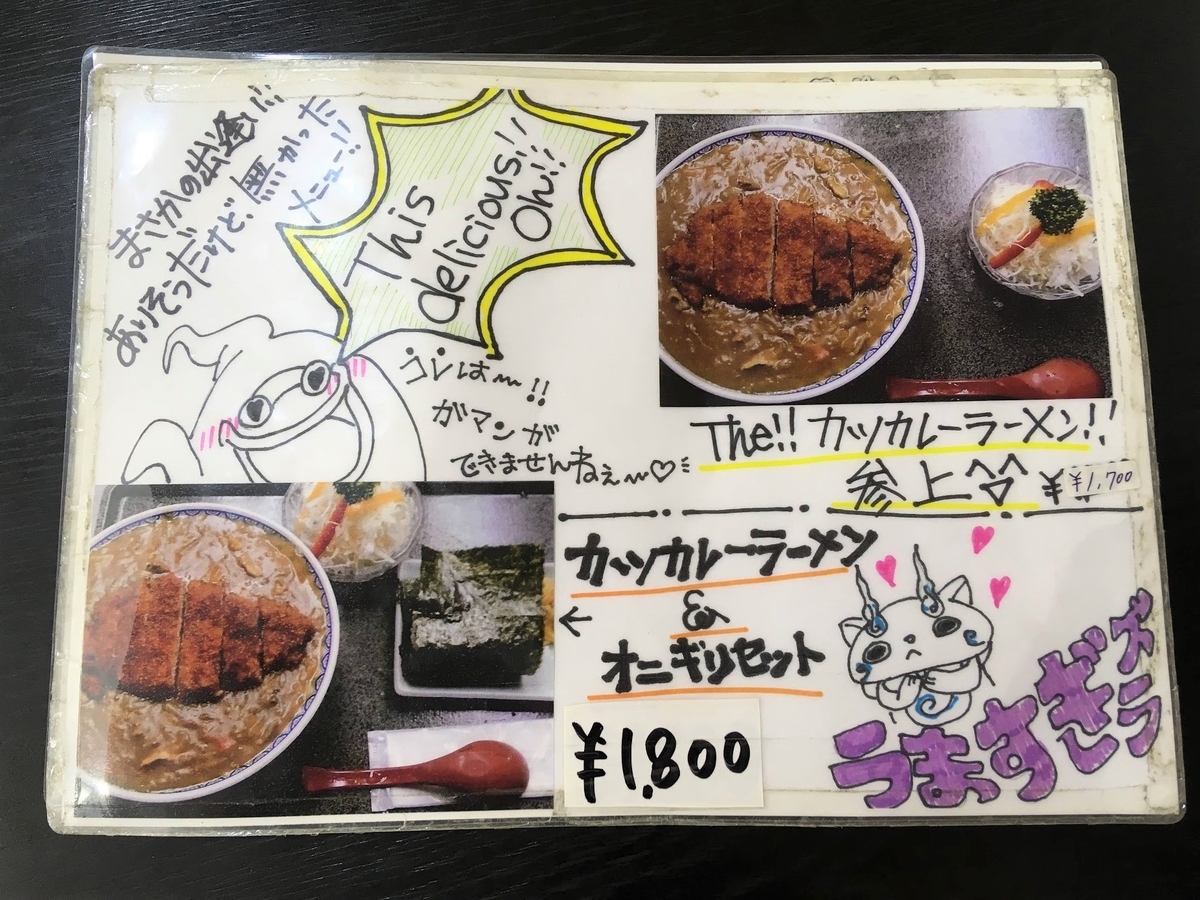 まさかの出逢い!!
ありそうだけど、無かった
メニュー!!
This
delicious!!
Oh!!
うぃは〜!!
ガマンが
できませんねぇ〜♡
The!! カツカレーラーメン!!
参上
¥1,700
カツカレーラーメン
&
←
オニギリセット
¥1,800
うますぎズラ